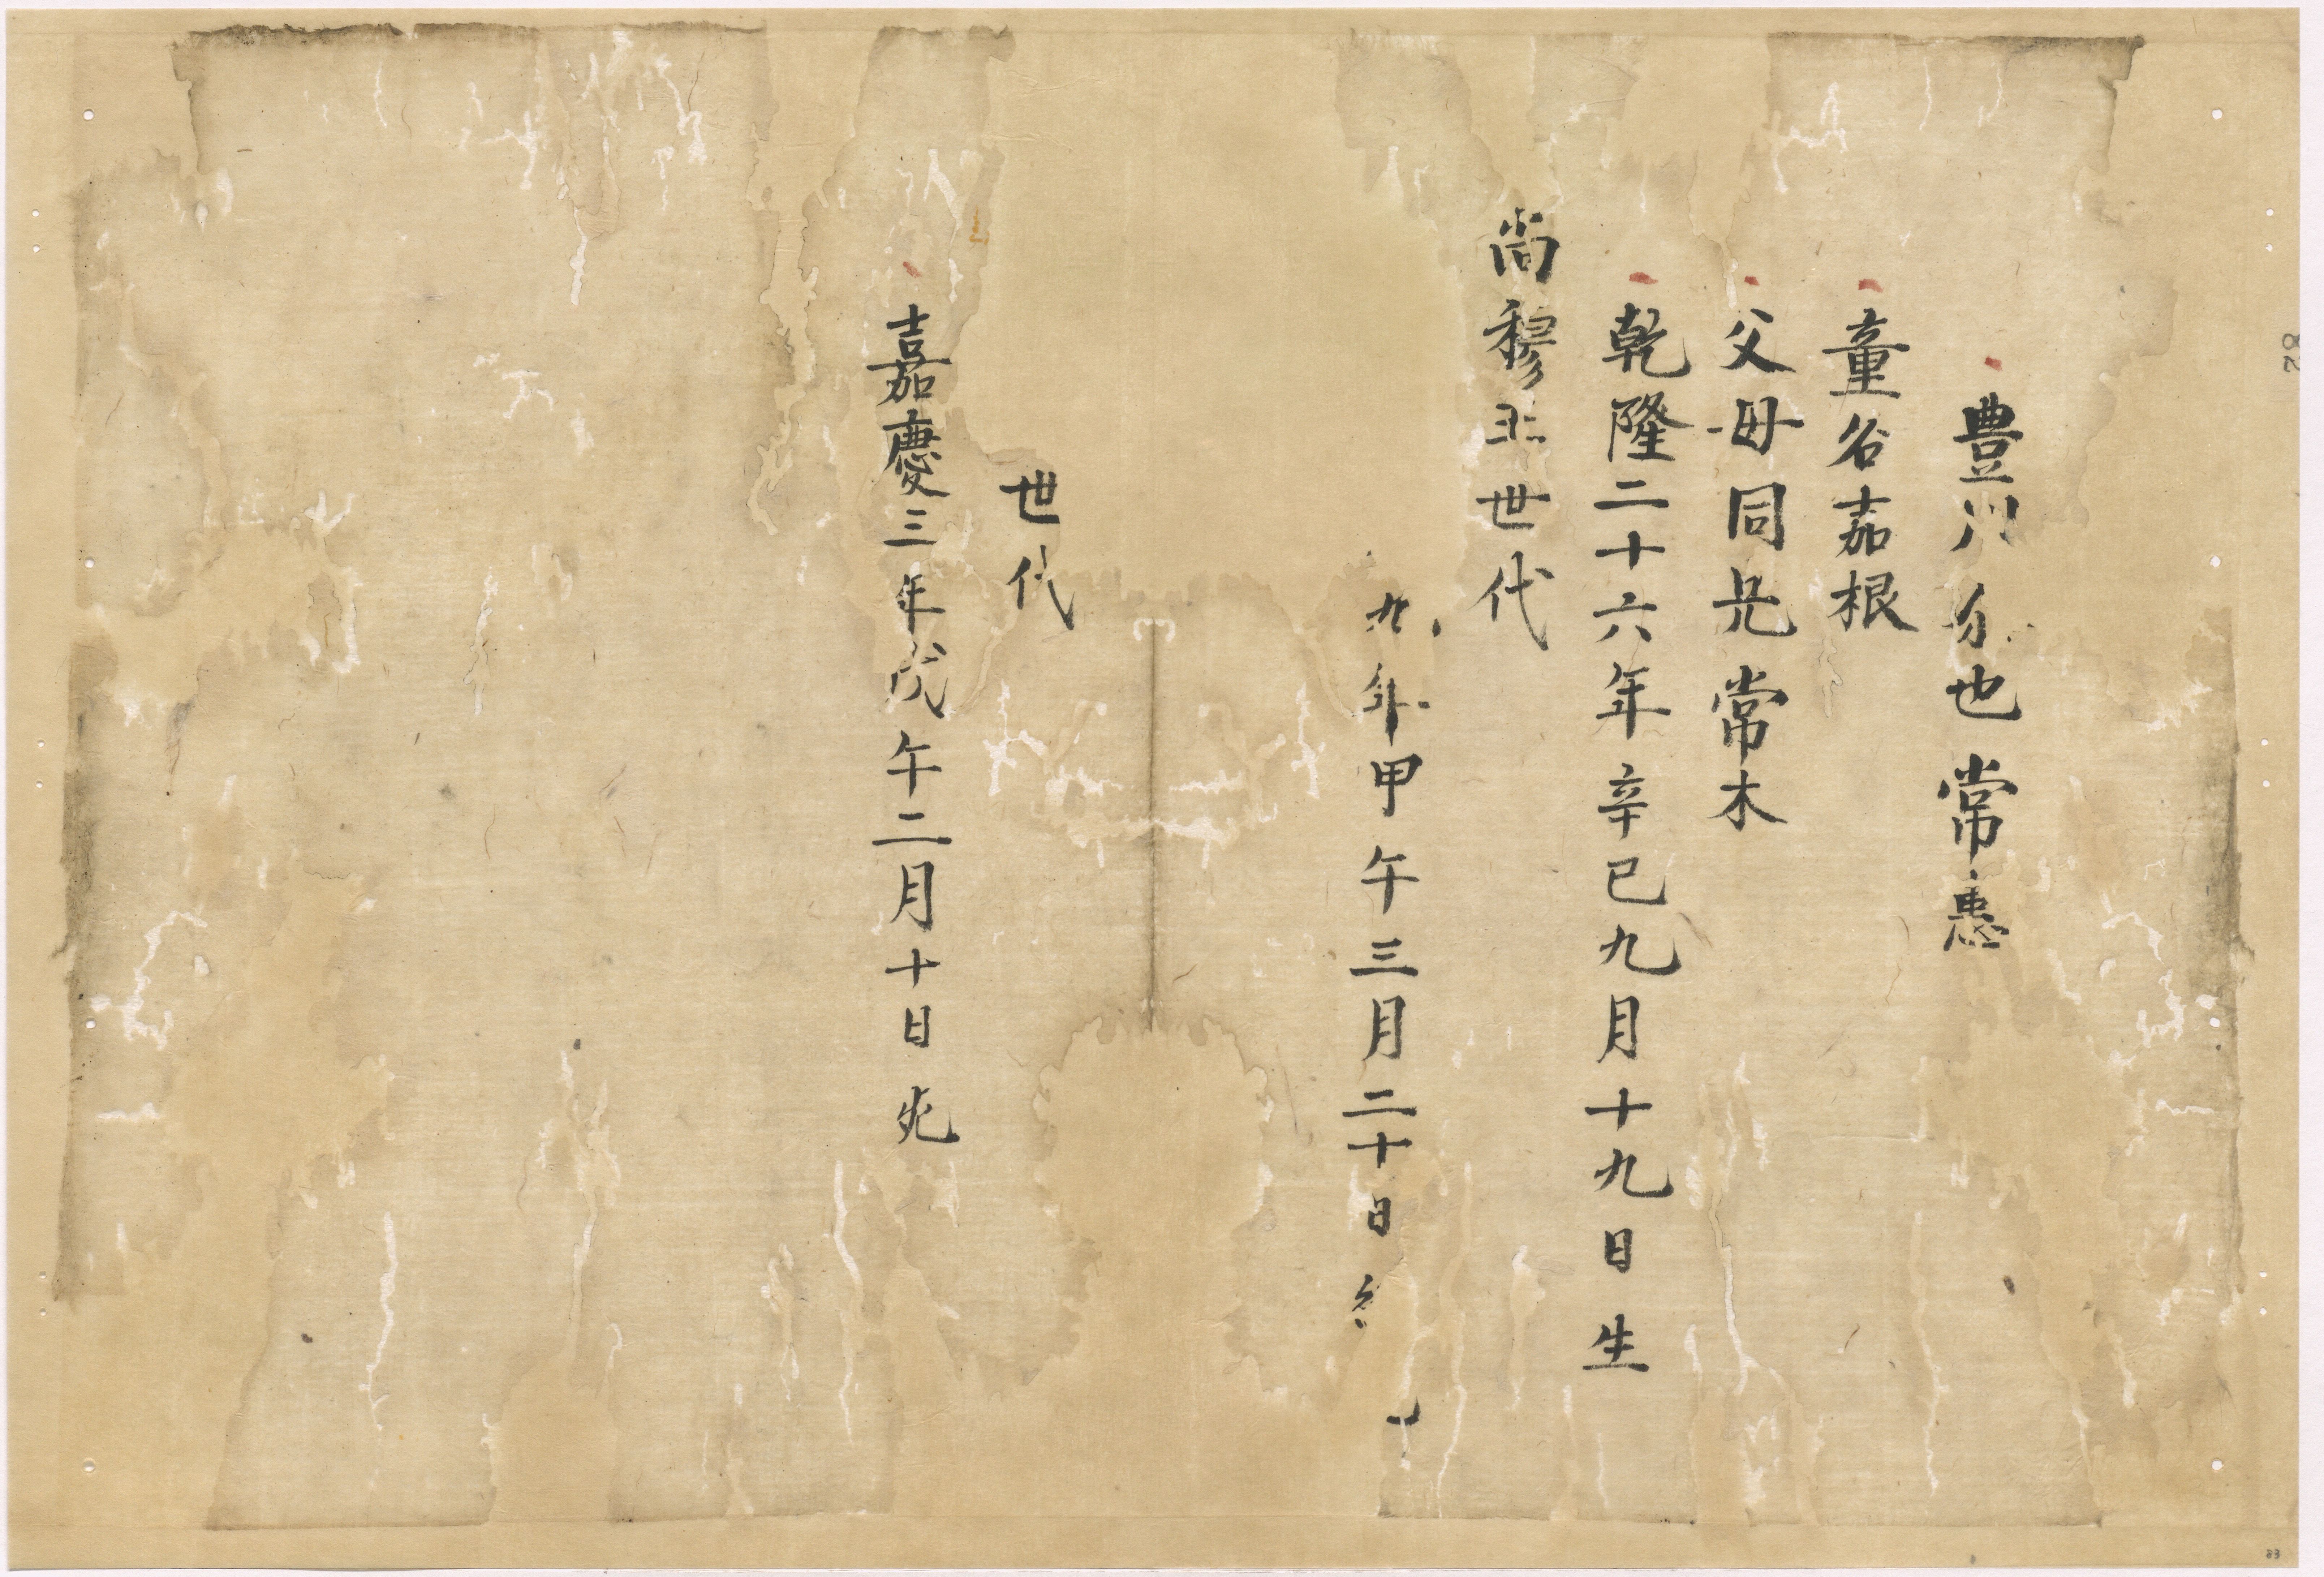 豊川 也常惠
童名嘉根
父母同兄常木
乾隆二十六年辛巳九月十九日生
尚穆王世代
九年甲午三月二十日
世代
嘉慶三年戊午二月十日死
28